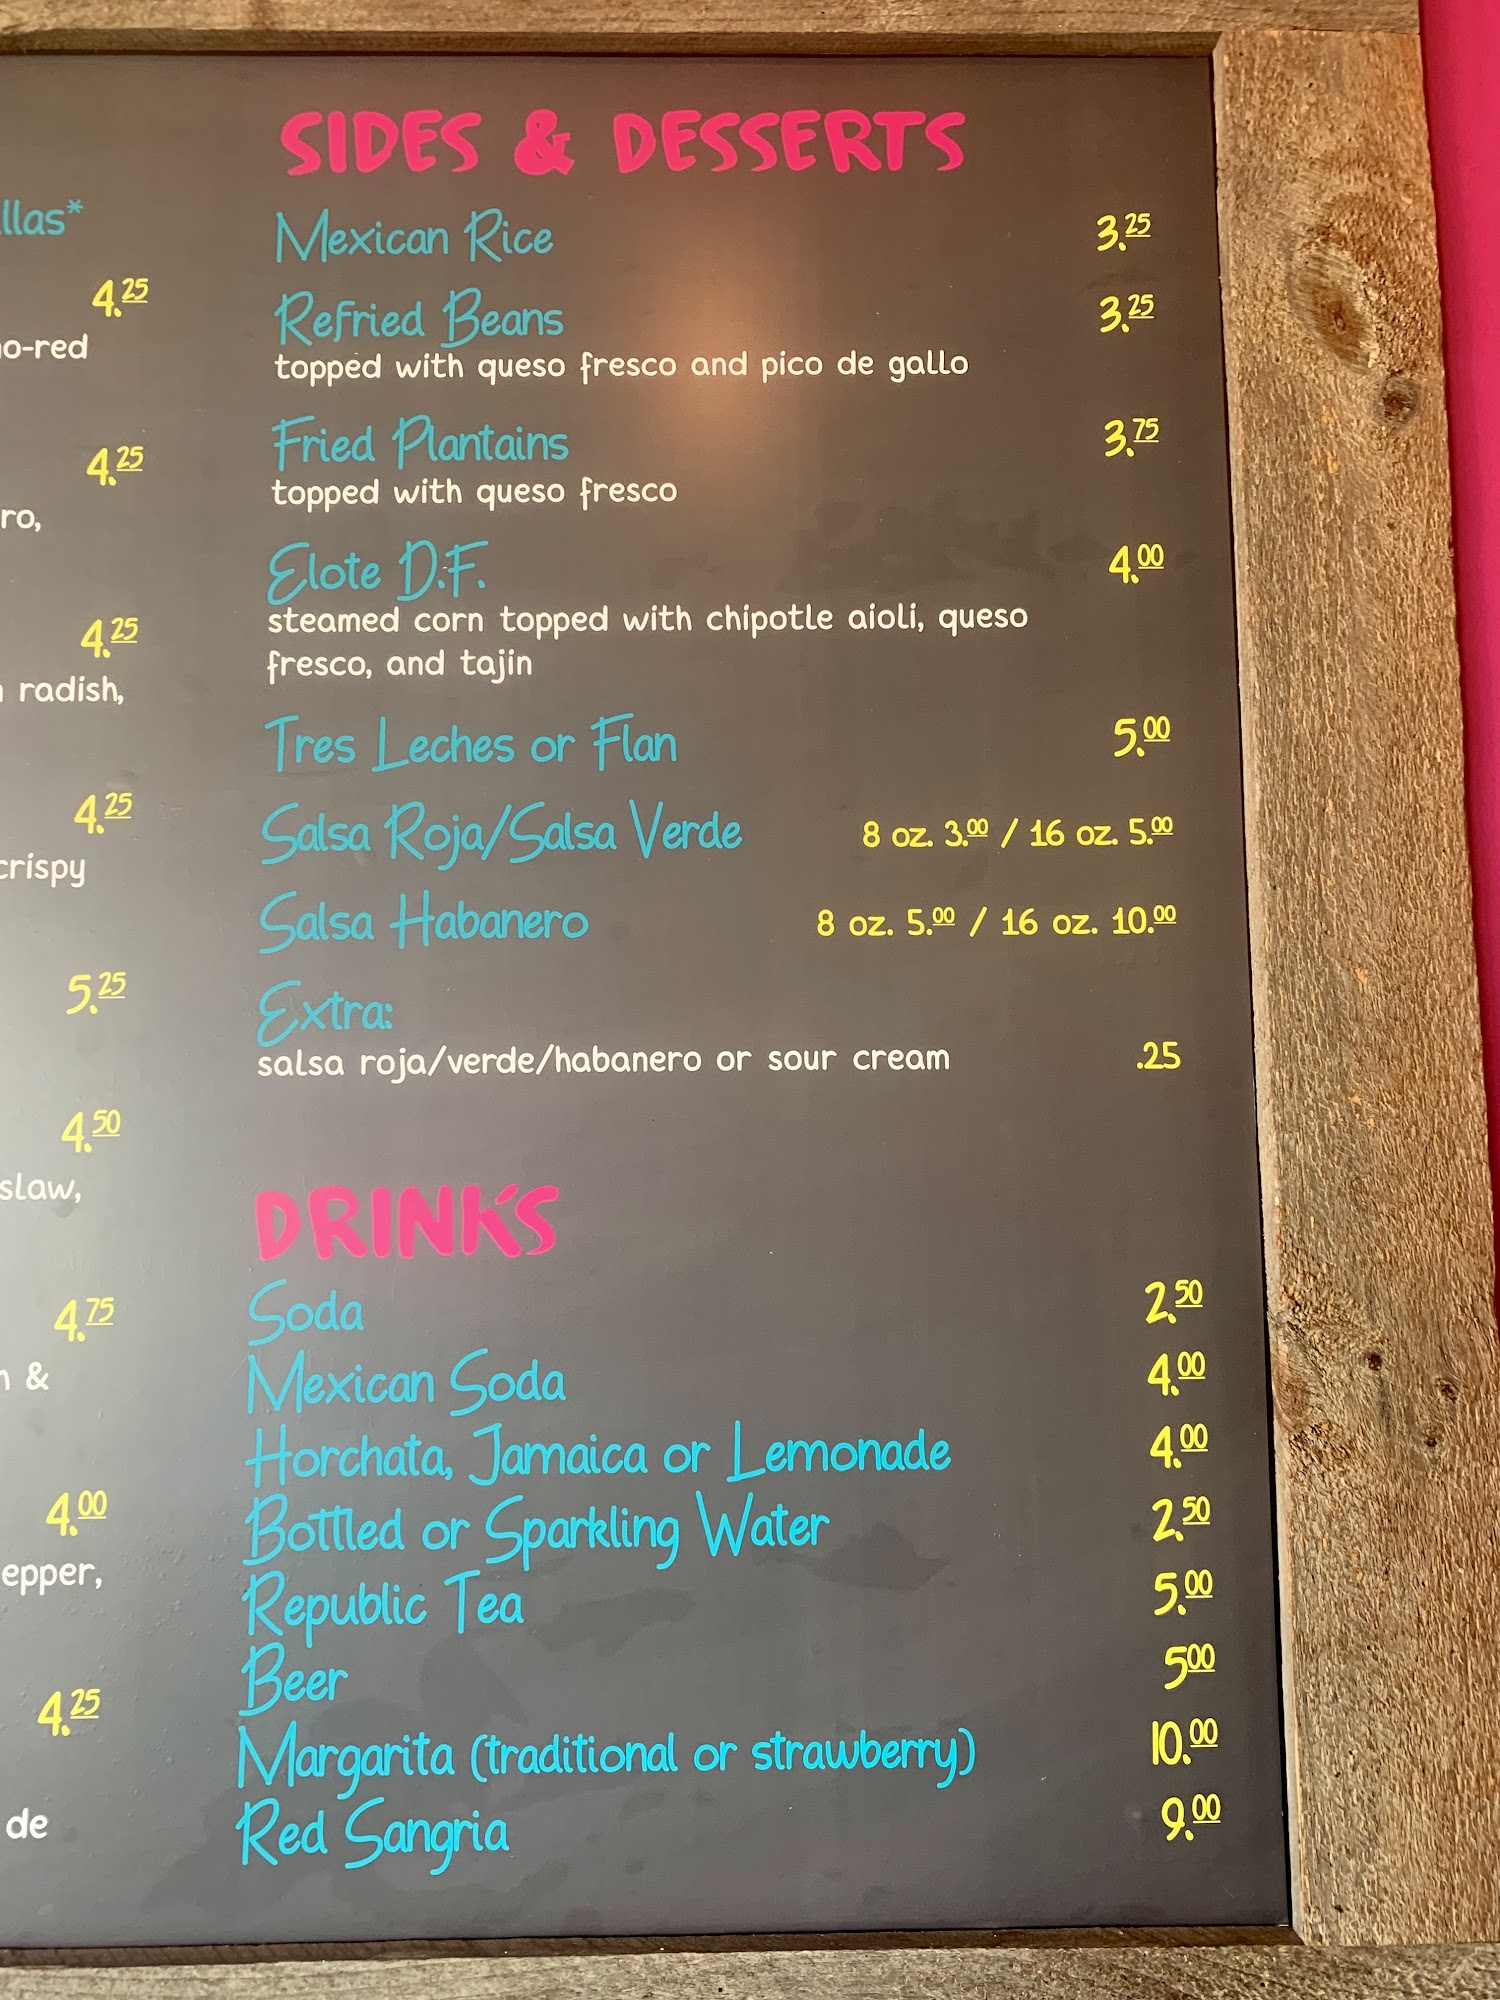 llas*
4.25
o-red
4.25
ro,
4.25
radish,
4.25
crispy
5.25
4.50
slaw,
4.75
&
4.00
epper,
4.25
de
SIDES & DESSERTS
Mexican Rice 3.25
Refried Beans 3.25
topped with queso fresco and pico de gallo
Fried Plantains 3.75
topped with queso fresco
Elote D.F. 4.00
steamed corn topped with chipotle aioli, queso
fresco, and tajin
Tres Leches or Flan 5.00
Salsa Roja/Salsa Verde 8 oz. 3.00 / 16 oz. 5.00
Salsa Habanero 8 oz. 5.00 / 16 oz. 10.00
Extra:
salsa roja/verde/habanero or sour cream .25
DRINKS
Soda 2.50
Mexican Soda 4.00
Horchata, Jamaica or Lemonade 4.00
Bottled or Sparkling Water 2.50
Republic Tea 5.00
Beer 500
Margarita (traditional or strawberry) 10.00
Red Sangria 9.00